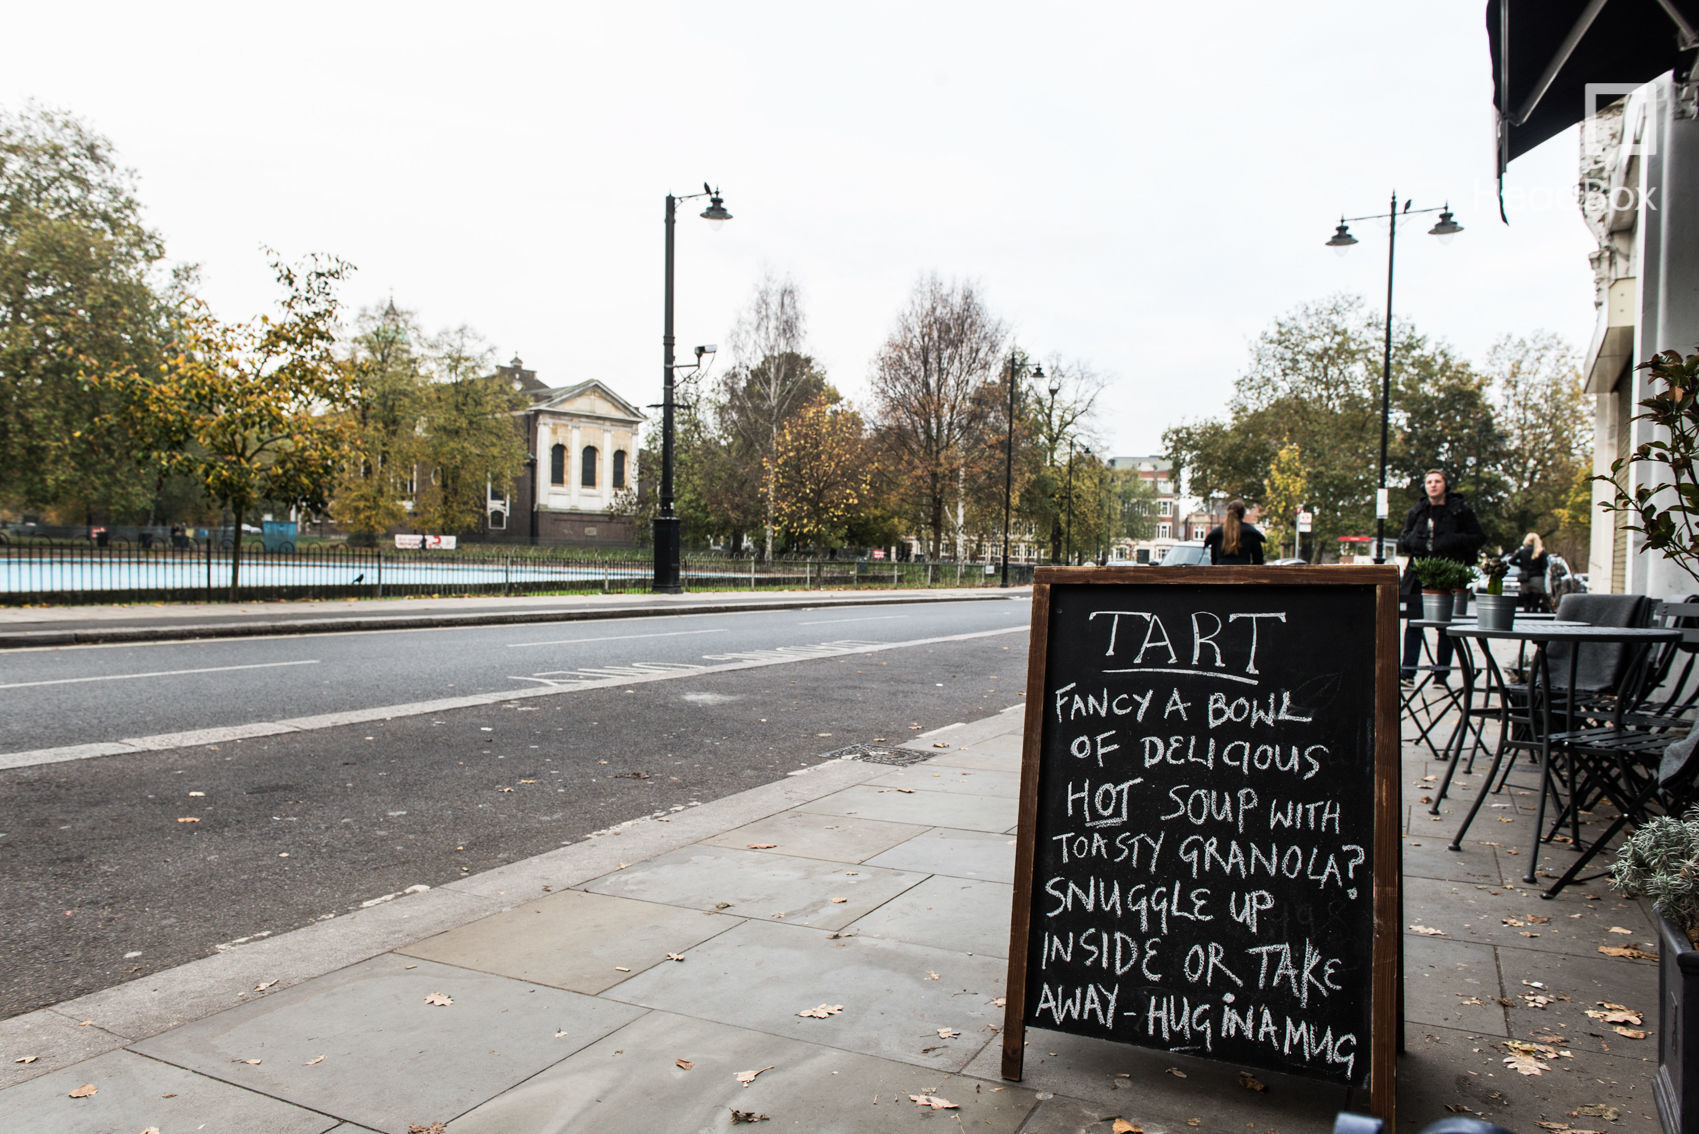 HeadBox
TART
FANCY A BOWL
OF DELICIOUS
HOT SOUP WITH
TOASTY GRANOLA?
SNUGGLE UP
INSIDE OR TAKE
AWAY - HUG IN A MUG